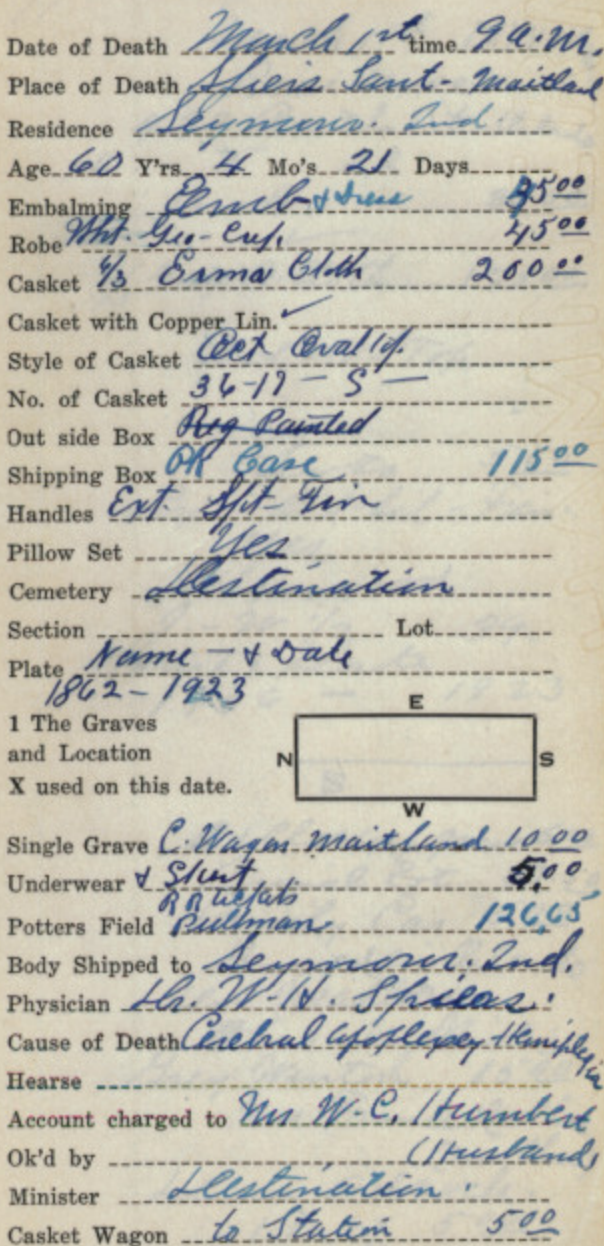 Date of Death March 1st time 9 a.m.
Place of Death Spiers Sant - Maitland
Residence Seymour. Ind.
Age 60 Y'rs 4 Mo's 21 Days
Embalming Emb & Dress 35 00
Robe Wht. Geo - Crep. 45 00
Casket 6/3 Erma Cloth 200 00
Casket with Copper Lin. ✓
Style of Casket Oct Oval
No. of Casket 36-17 - S -
Out side Box Reg Painted
Shipping Box Case 115 00
Handles Ext. Tin
Pillow Set Yes
Cemetery Destination
Section Lot
Plate Name - & Date
1862 - 1923
E
1 The Graves
and Location
X used on this date.
N S
W
Single Grave C. Wagon Maitland 10 00
Underwear & Skirt 5.00
R R tickets
Potters Field Pullman 126.65
Body Shipped to Seymour. Ind.
Physician Dr. W. H. Spiers.
Cause of Death Cerebral apoplexey Hemiplegia
Hearse
Account charged to W. C. Humbert
Ok'd by (Husband)
Minister Destination.
Casket Wagon to Station 5 00